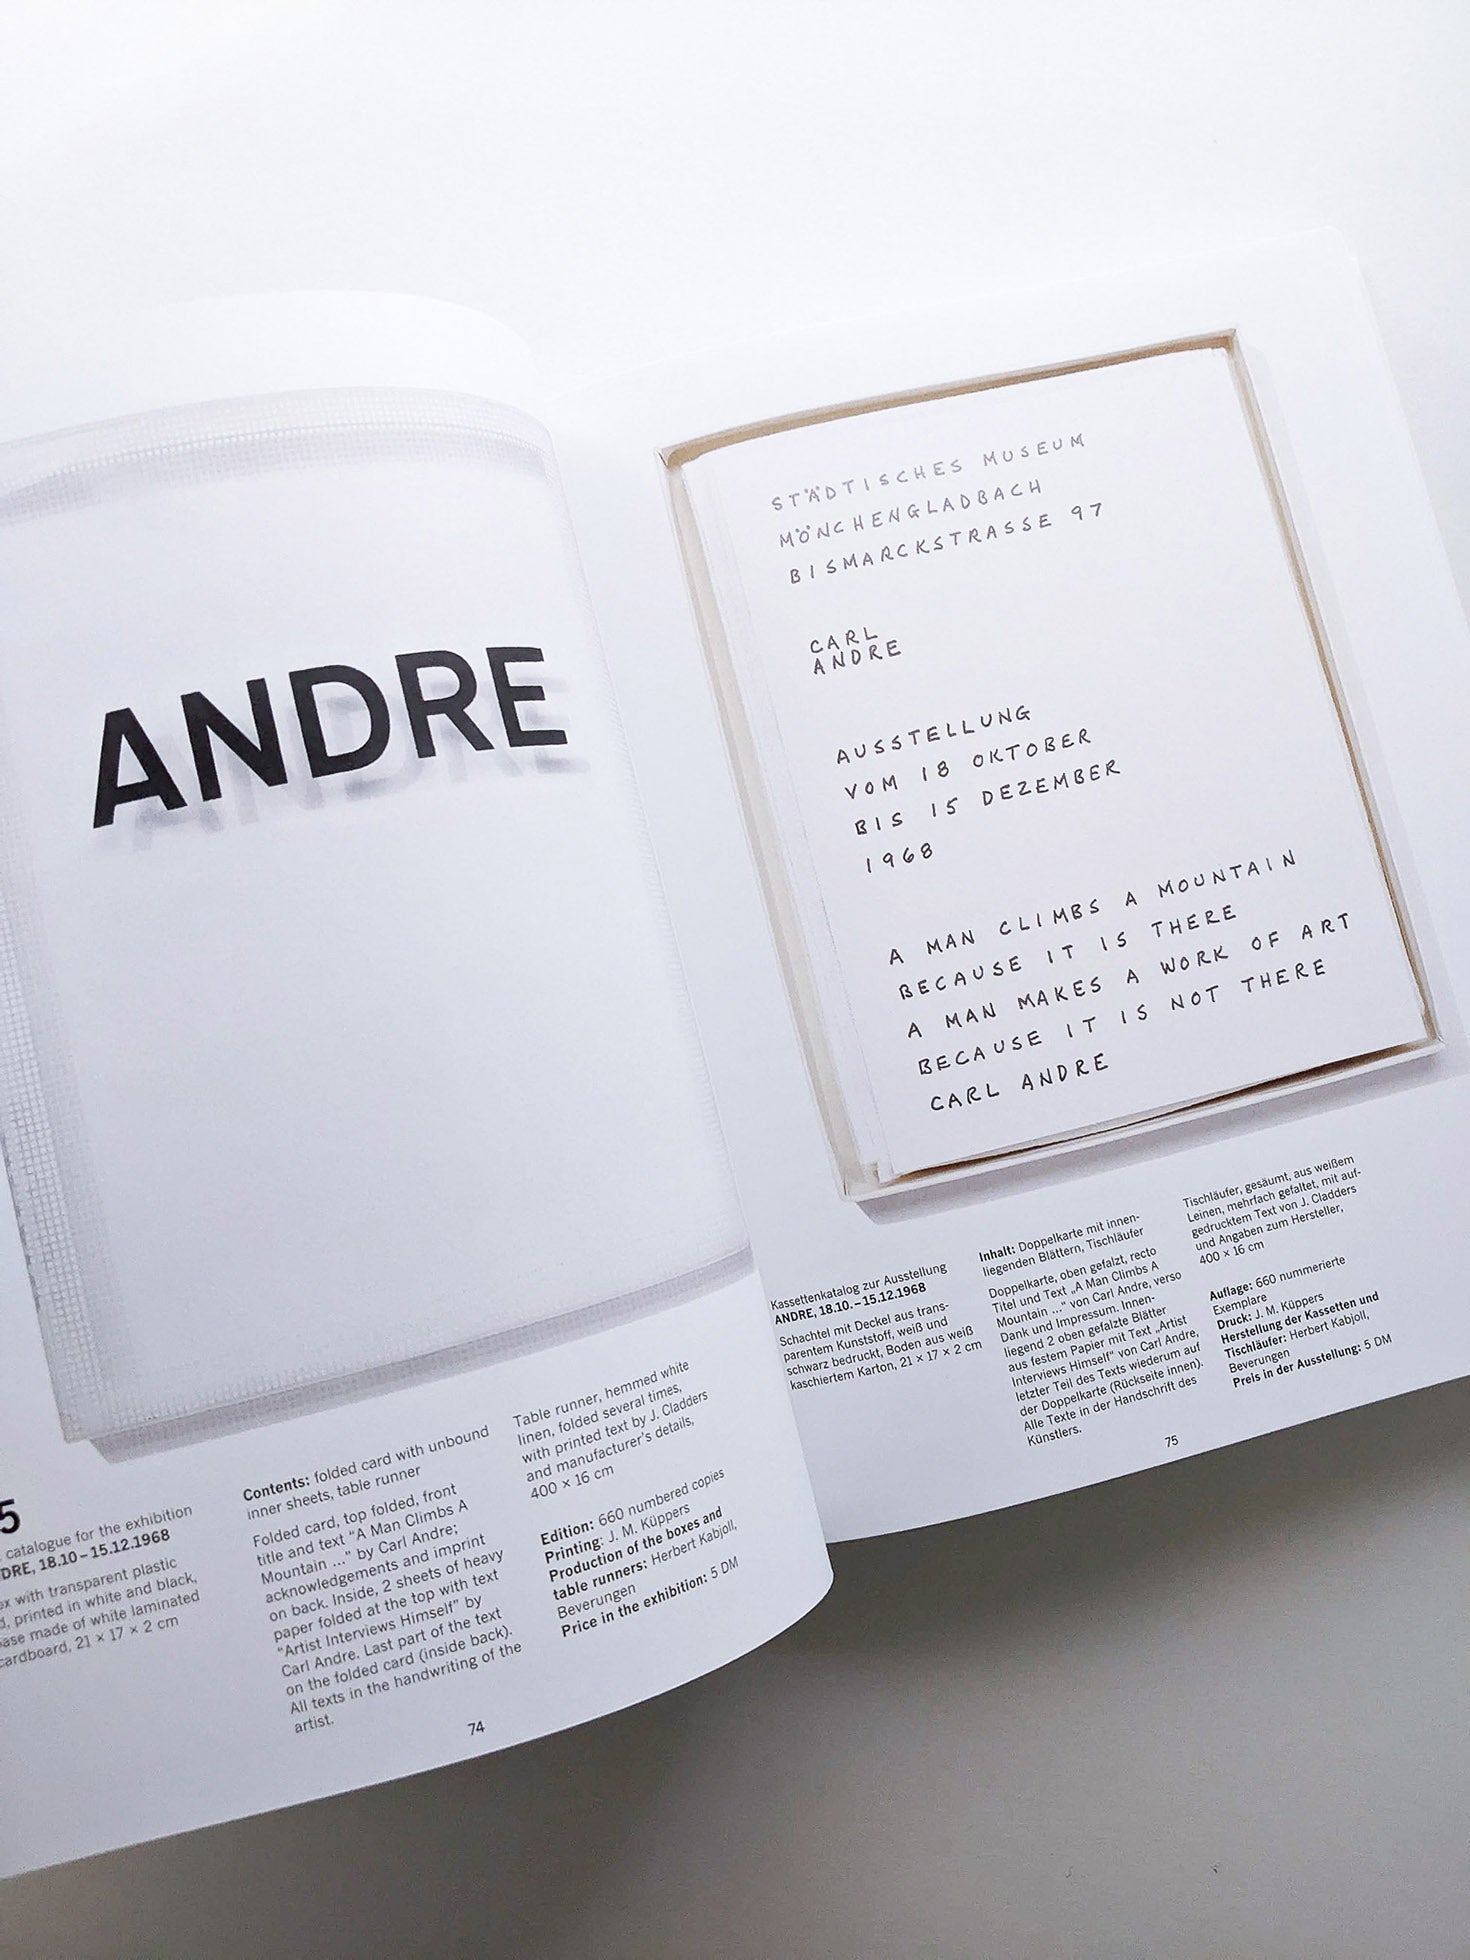 ANDRE
5
catalogue for the exhibition
DRE, 18.10 – 15.12.1968
with transparent plastic
printed in white and black,
made of white laminated
cardboard, 21 × 17 × 2 cm
Contents: folded card with unbound
inner sheets, table runner
Folded card, top folded, front
title and text “A Man Climbs A
Mountain ...” by Carl Andre;
acknowledgements and imprint
on back. Inside, 2 sheets of heavy
paper folded at the top with text
“Artist Interviews Himself” by
Carl Andre. Last part of the text
on the folded card (inside back).
All texts in the handwriting of the
artist.
Table runner, hemmed white
linen, folded several times,
with printed text by J. Cladders
and manufacturer’s details,
400 × 16 cm
Edition: 660 numbered copies
Printing: J. M. Küppers
Production of the boxes and
table runners: Herbert Kabjoll,
Beverungen
Price in the exhibition: 5 DM
74
STÄDTISCHES MUSEUM
MÖNCHENGLADBACH
BISMARCKSTRASSE 97
CARL
ANDRE
AUSSTELLUNG
VOM 18 OKTOBER
BIS 15 DEZEMBER
1968
A MAN CLIMBS A MOUNTAIN
BECAUSE IT IS THERE
A MAN MAKES A WORK OF ART
BECAUSE IT IS NOT THERE
CARL ANDRE
Kassettenkatalog zur Ausstellung
ANDRE, 18.10. – 15.12.1968
Schachtel mit Deckel aus trans-
parentem Kunststoff, weiß und
schwarz bedruckt, Boden aus weiß
kaschiertem Karton, 21 × 17 × 2 cm
Inhalt: Doppelkarte mit innen-
liegenden Blättern, Tischläufer
Doppelkarte, oben gefalzt, recto
Titel und Text „A Man Climbs A
Mountain ...“ von Carl Andre, verso
Dank und Impressum. Innen-
liegend 2 oben gefalzte Blätter
aus festem Papier mit Text „Artist
Interviews Himself“ von Carl Andre,
letzter Teil des Texts wiederum auf
der Doppelkarte (Rückseite innen).
Alle Texte in der Handschrift des
Künstlers.
Tischläufer, gesäumt, aus weißem
Leinen, mehrfach gefaltet, mit auf-
gedrucktem Text von J. Cladders
und Angaben zum Hersteller,
400 × 16 cm
Auflage: 660 nummerierte
Exemplare
Druck: J. M. Küppers
Herstellung der Kassetten und
Tischläufer: Herbert Kabjoll,
Beverungen
Preis in der Ausstellung: 5 DM
75